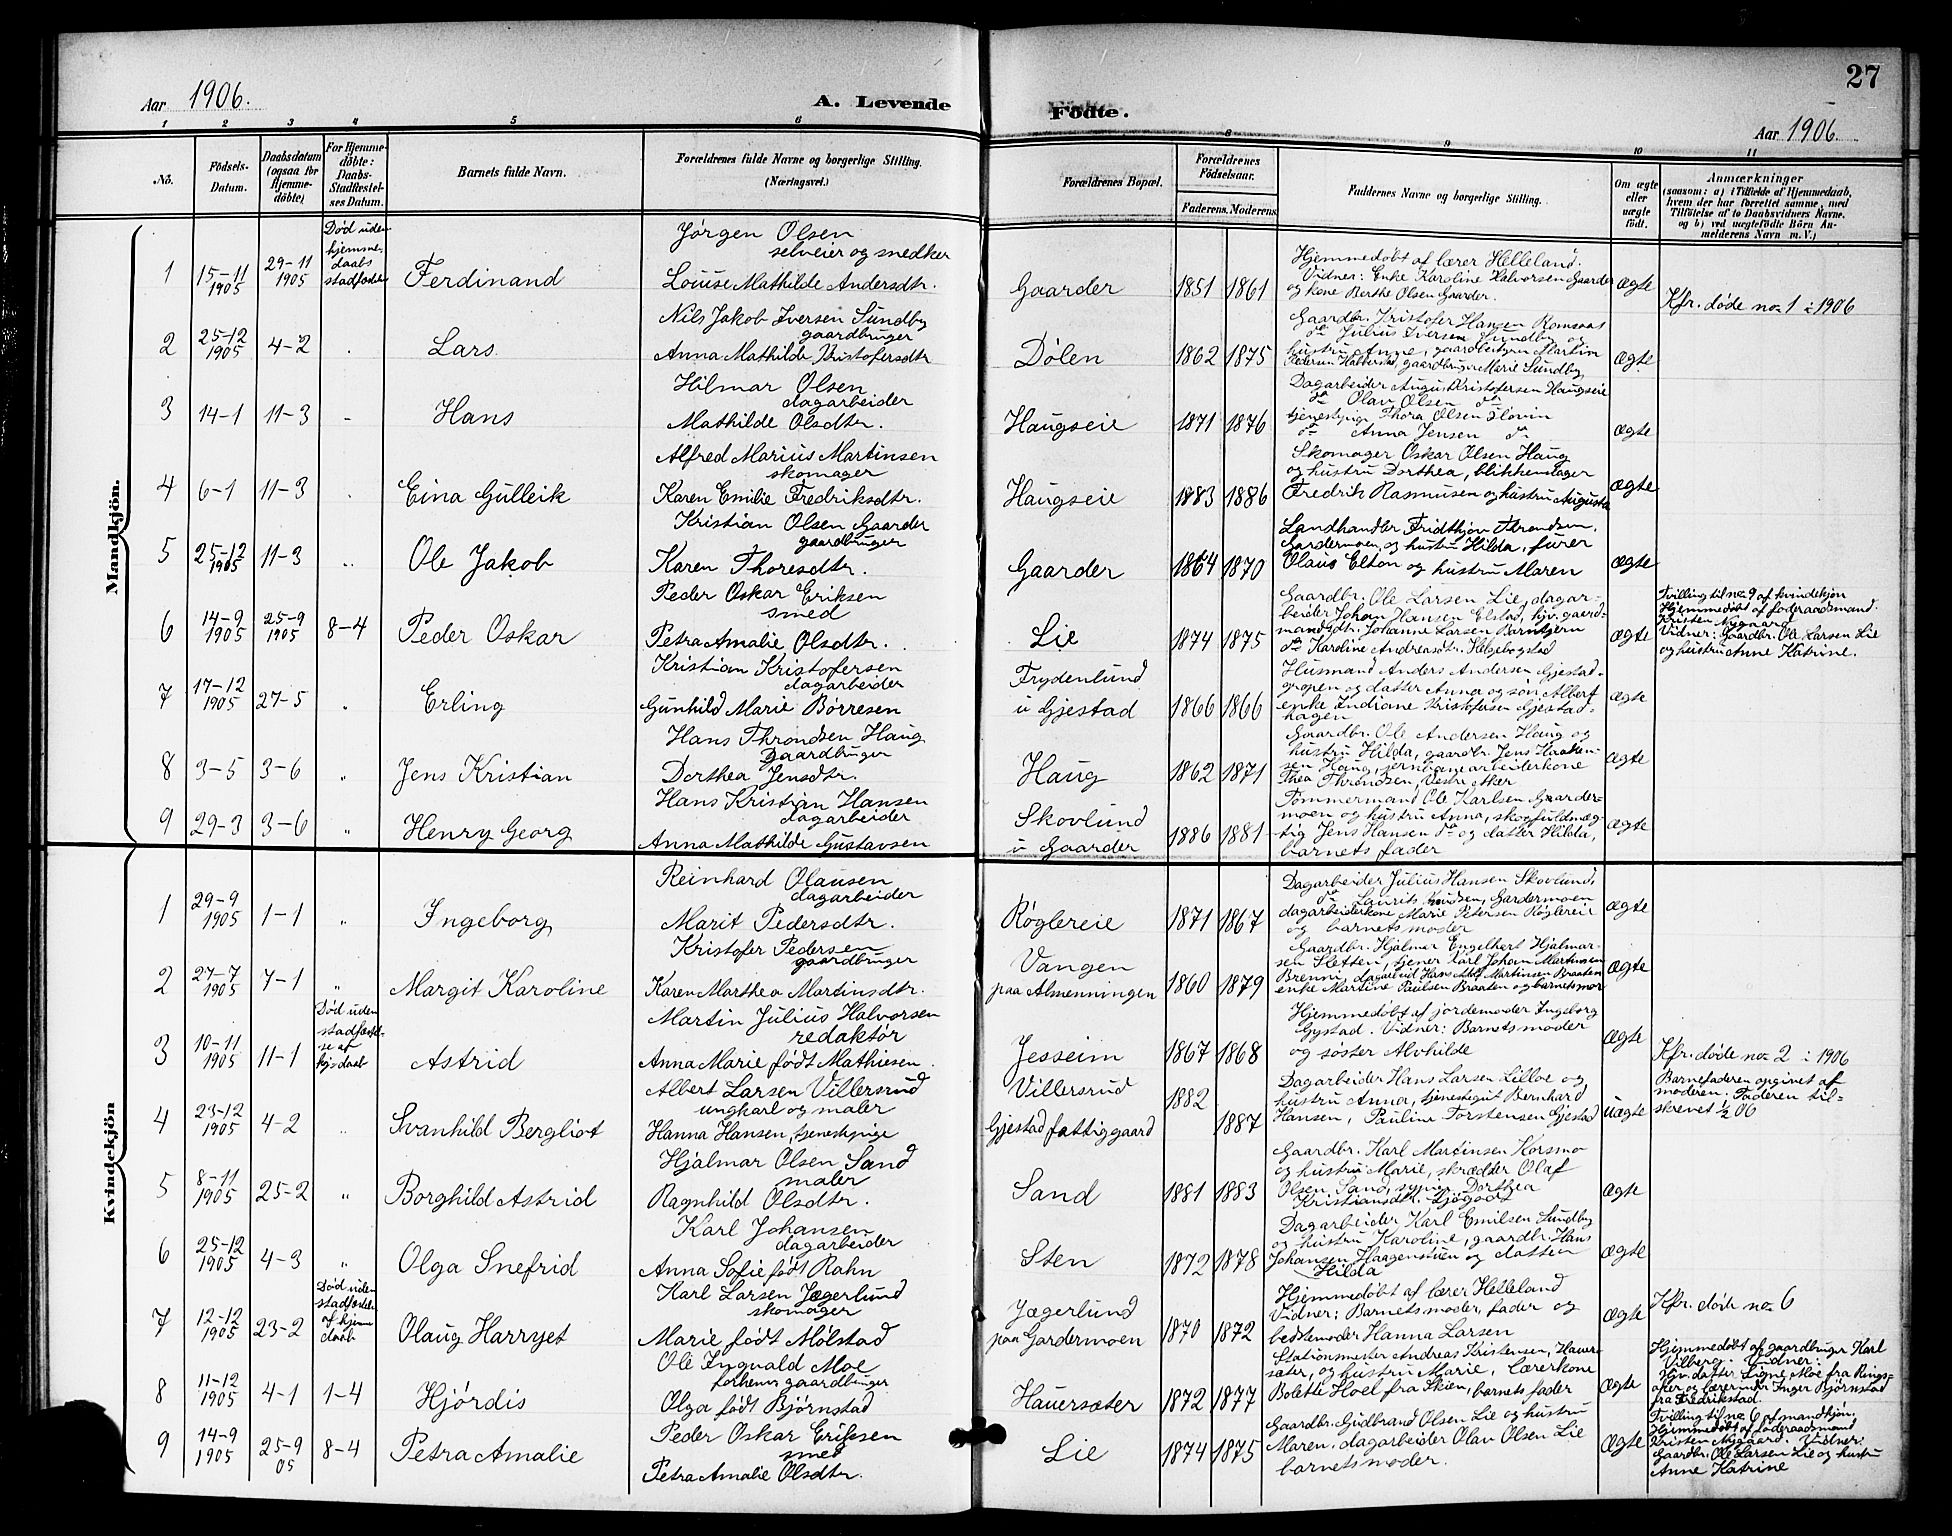 Aar 1906.
A. Levende
1 2 3 4 5 6
No.
Födsels-
Datum.
Daabsdatum
(ogsaa for
Hjemme-
döbte)
For Hjemme-
döbte:
Daabs-
Stadfæstel-
ses Datum.
Barnets fulde Navn.
Forældrenes fulde Navne og borgerlige Stilling.
(Næringsvei.)
Mandkjön.
Død uden
hjemme-
daabs
stadfæstelse
1 15-11 1905 29-11 1905 Ferdinand
Jørgen Olsen
selveier og snedker
Louise Mathilde Andersdtr.
2 25-12 1905 4-2 Lars
Nils Jakob Iversen Sundby
gaardbruger
Anna Mathilde Kristofersdtr
3 14-1 11-3 Hans
Hilmar Olsen
dagarbeider
Mathilde Olsdtr.
4 6-1 11-3 Eina Gulleik
Alfred Marius Martinsen
skomager
Karen Emilie Fredriksdtr.
5 25-12 1905 11-3 Ole Jakob
Kristian Olsen Gaarder
gaardbruger
Karen Thoresdtr.
6 14-9 1905 25-9 1905 8-4 Peder Oskar
Peder Oskar Eriksen
smed
Petra Amalie Olsdtr.
7 17-12 1905 27-5 " Erling
Kristian Kristofersen
dagarbeider
Gunhild Marie Børresen
8 3-5 3-6 " Jens Kristian
Hans Throndsen Haug
Gaardbruger
Dorthea Jensdtr.
9 29-3 3-6 " Henry Georg
Hans Kristian Hansen
dagarbeider
Anna Mathilde Gustavsen
Kvindekjön
1 29-9 1905 1-1 " Ingeborg
Reinhard Olausen
dagarbeider
Marit Pedersdtr.
2 27-7 1905 7-1 " Margit Karoline
Kristofer Pedersen
gaardbruger
Karen Marthea Martinsdtr.
Død uden
stadfæstel-
se af
hjdaab
3 10-11 1905 11-1 Astrid
Martin Julius Halvorsen
redaktør
Anna Marie født Mathiesen.
4 23-12 1905 4-2 " Svanhild Bergliot
Albert Larsen Villersrud
ungkarl og maler
Hanna Hansen, tjenestepige
5 8-11 1905 25-2 " Borghild Astrid
Hjalmar Olsen Sand
maler
Ragnhild Olsdtr.
6 25-12 1905 4-3 " Olga Snefrid
Karl Johansen
dagarbeider
Anna Sofie født Rahn
Død uden
stadfæstelse
af hjem
daab
7 12-12 1905 23-2 Olaug Harryet
Karl Larsen Jægerlund
skomager
Marie født Mølstad
8 11-12 1905 4-1 1-4 Hjørdis
Ole Ingvald Moe
forhenv gaardbruger
Olga født Bjørnstad
9 14-9 1905 25-9 05 8-4 Petra Amalie
Peder Oskar Eriksen
smed
Petra Amalie Olsdtr.
27
Födte.
Aar 1906
8 9 10 11
Forældrenes Bopæl.
Forældrenes
Födselsaar.
Faderens. Moderens.
Faddernes Navne og borgerlige Stilling.
Om ægte
eller
uægte
födt.
Anmærkninger
(saasom: a) i Tilfælde af Hjemmedaab,
hvem der har forrettet samme, med
Tilföielse af to Daabsvidners Navne.
og b) ved uægtefödte Börn An-
melderens Navn m. V.)
Gaarder 1851 1861
Hjemmedøbt af lærer Helleland.
Vidner: Enke Karoline Halvorsen Gaarder
og kone Berthe Olsen Gaarder.
ægte
Kfr. døde no 1 i 1906
Dølen 1862 1875
Gaardbr. Kristofer Hansen Romsaas
do Julius Iversen Sundby og
hustru Anne, gaardbestyrer Martin
Pedersen Habberstad, gaardbruger Marie Sundby
ægte
Haugseie 1871 1876
Dagarbeider August Kristofersen Haugseie
do Olav Olsen do
tjenestepige Thora Olsen Flovin
do Anna Jensen do
ægte
Haugseie 1883 1886
Skomager Oskar Olsen Haug
og hustru Dorthea, blikkenslager
Fredrik Rasmussen og hustru Augusta
ægte
Gaarder 1864 1870
Landhandler Fridthjov Throndsen.
Gardermoen, og hustru Hilda, furer
Olaus Elton og hustru Maren
ægte
Lie 1874 1875
Gaardbr. Ole Larsen Lie, dagar-
beider Johan Hansen Elstad, hjv. gaard-
mandsdtr. Johanne Larsen Barnhjern
do Karoline Andreasdtr. Helgebostad
ægte
Tvilling til no 9 af kvindekjøn
Hjemmedøbt af føderaadsmand.
Kristen Nygaard
Vidner: Gaardbr. Ole Larsen Lie
og hustru Anne Katrine.
Frydenlund
u Gjestad 1866 1866
Husmand Anders Andersen Gjestad-
gropen og datter Anna og søn Albert
enke Indiane Kristofersen Gjestad-
hagen
ægte
Haug 1862 1871
Gaardbr. Ole Andersen Haug og
hustru Hilda, gaardbr. Jens Haaken-
sen Haug, jernbanearbeiderkone
Thea Throndsen, Vestre Aker
ægte
Skovlund
u Gaarder 1886 1881
Tømmermand Ole Karlsen Gaarder-
moen og hustru Anna, skogfuldmæg-
tig Jens Hansen do og datter Hilda,
barnets fader
ægte
Røglereie 1871 1867
Dagarbeider Julius Hansen Skovlund,
do Laurits Knudsen, Gardermoen
dagarbeiderkone Marie Petersen Røglereie
og barnets moder
ægte
Vangen
paa Almenningen 1860 1879
Gaardbr. Hjalmer Engelhert Hjalmar-
sen Sletten, tjener Karl Johan Martinsen
Brenni, dagarbeid Hans Adolf Martinsen Braaten
enke Martine Paulsen Braaten og barnets mor
ægte
Jesseim 1867 1868
Hjemmedøbt af jordemoder Ingeborg
Gystad. Vidner: Barnets moder
og søster Alvhilde
ægte
Kfr. døde no 2 i 1906
Villersrud 1882
Gjestad fattiggaard 1887
Dagarbeider Hans Larsen Lilloe og
hustru Anna, tjenestegut Bernhard
Hansen, Pauline Torstensen Gjestad
uægte
Barnefaderen opgivet af
moderen. Faderen til-
skrevet ½ 06
Sand 1881 1883
Gaardbr. Karl Martinsen Korsmo
og hustru Marie, skrædder Olaf
Olsen Sand, syerske Dorthea
Kristiansdtr.
ægte
Sten 1872 1878
Dagarbeider Karl Emilsen Sundby
og hustru Karoline, gaardbr. Hans
Johansen Haagenstuen og datter
Hilda
ægte
Jægerlund
paa Gardermoen 1870 1872
Hjemmedøbt af lærer Helleland
Vidner: Barnets moder, fader og
bedstemoder Hanna Larsen
ægte
Kfr. døde no 6
Hauersæter 1872 1877
Stationsmester Andreas Kristensen, Hauer-
sæter, og hustru Marie, Lærerkone
Bolette Hoel fra Skien, barnets fader
ægte
Hjemmedøbt af gaardbruger Karl
Vilberg. Vidner:
Hjv. datter Signe Moe fra Rings-
aker og lærerinde Inger Bjørnstad
fra Fredrikstad.
Lie 1874 1875
Gaardbr. Gudbrand Olsen Lie og hustru
Maren, dagarbeider Olav Olsen Lie
barnets moder.
ægte
Tvilling til no 6 af mandkjøn.
Hjemmedøbt af føderaadsmand
Kristen Nygaard. Vidner:
Gaardbr. Ole Larsen Lie og hustru
Anne Katrine